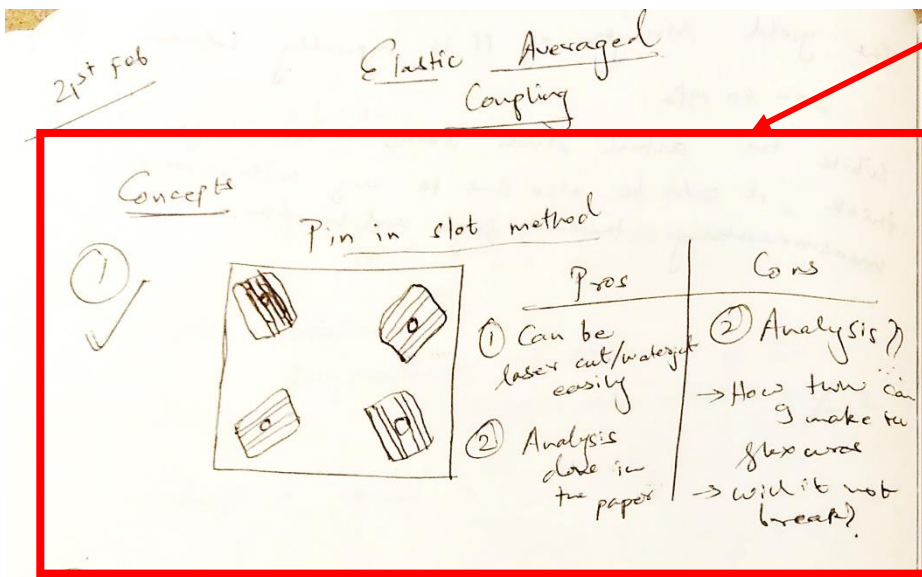 21st Feb
Elastic Averaged
Coupling
Concepts
Pin in slot method
①
Pros
① Can be
laser cut/waterjet
easily
② Analysis
done in
the paper
Cons
② Analysis?
→ How thin can
I make the
flexures
→ will it not
break?